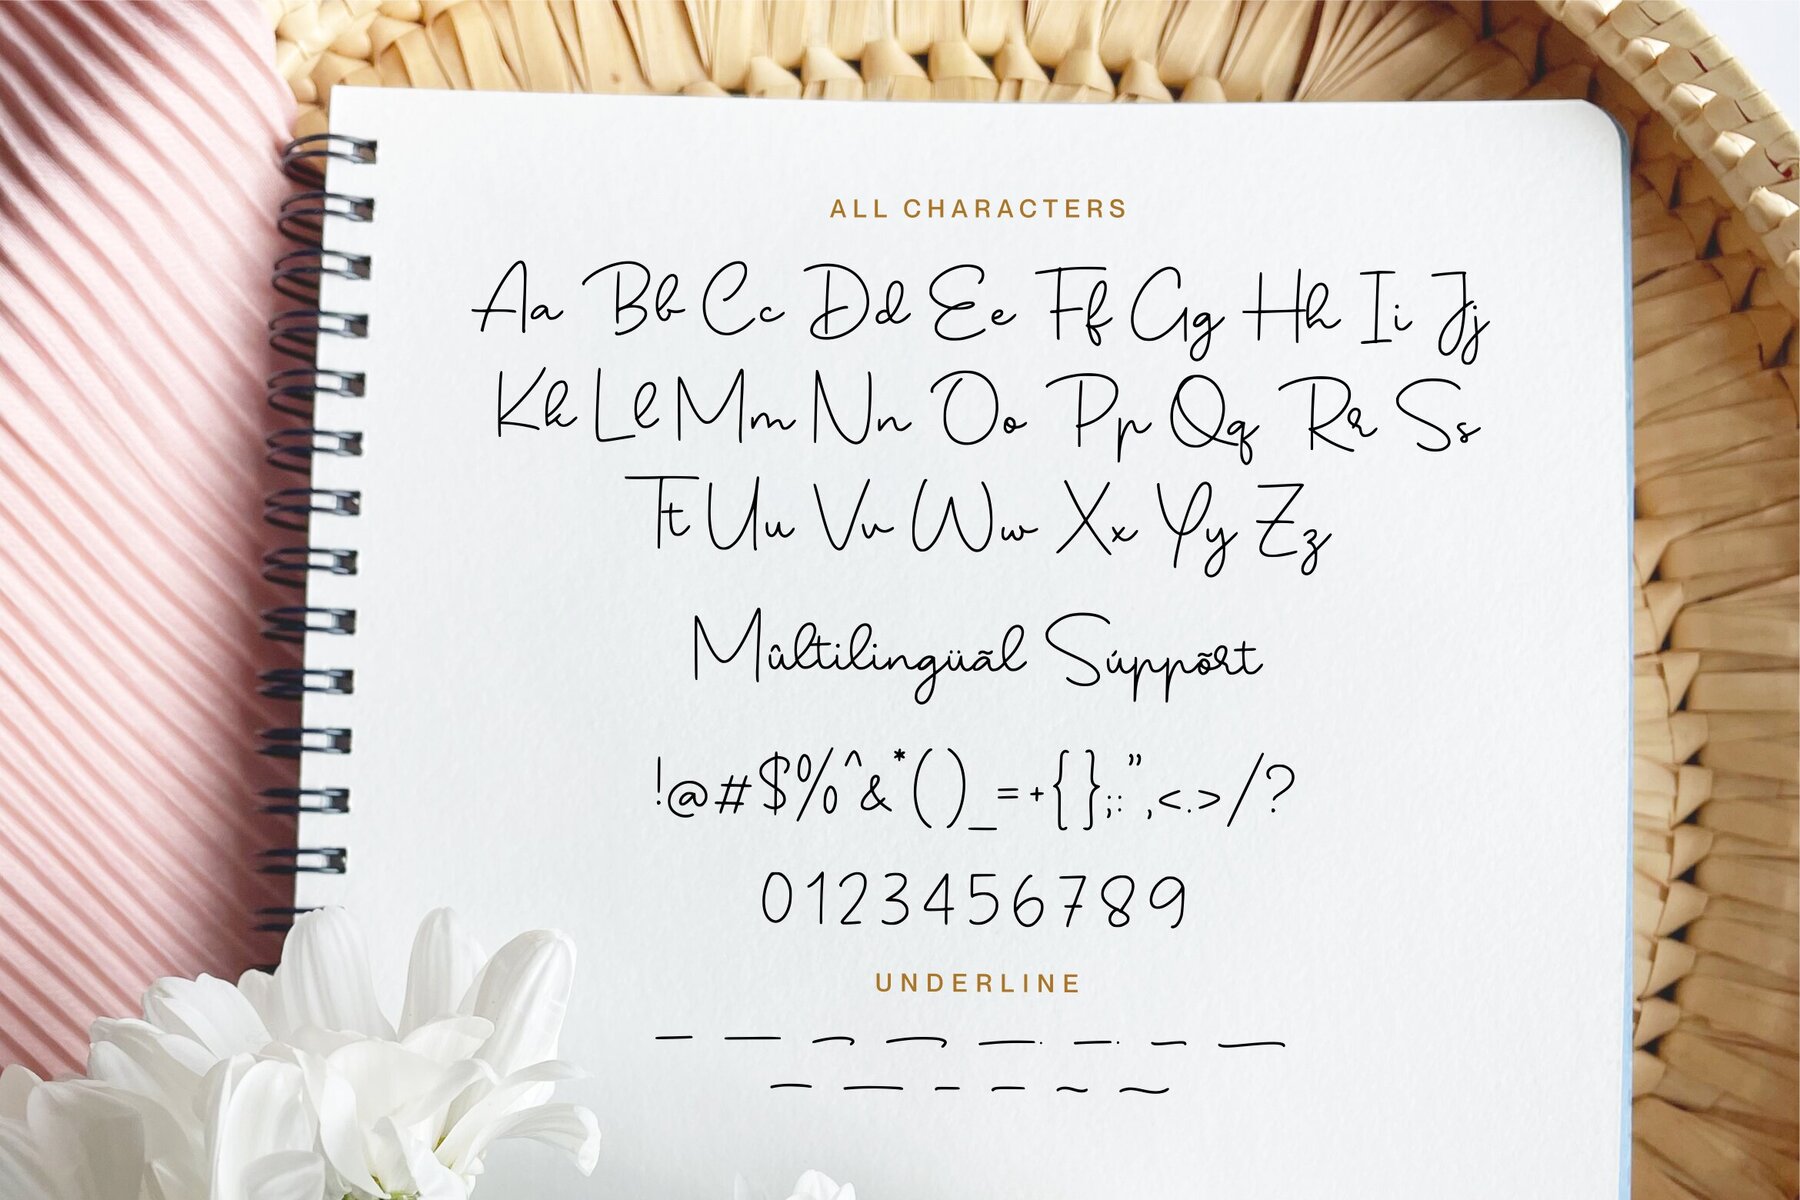 ALL CHARACTERS
Aa Bb Cc Dd Ee Ff Gg Hh Ii Jj
Kk Ll Mm Nn Oo Pp Qq Rr Ss
Tt Uu Vv Ww Xx Yy Zz
Mûltilingüãl Súppõrt
!@#$%^&*()_=+{};:",<.>/?
0123456789
UNDERLINE